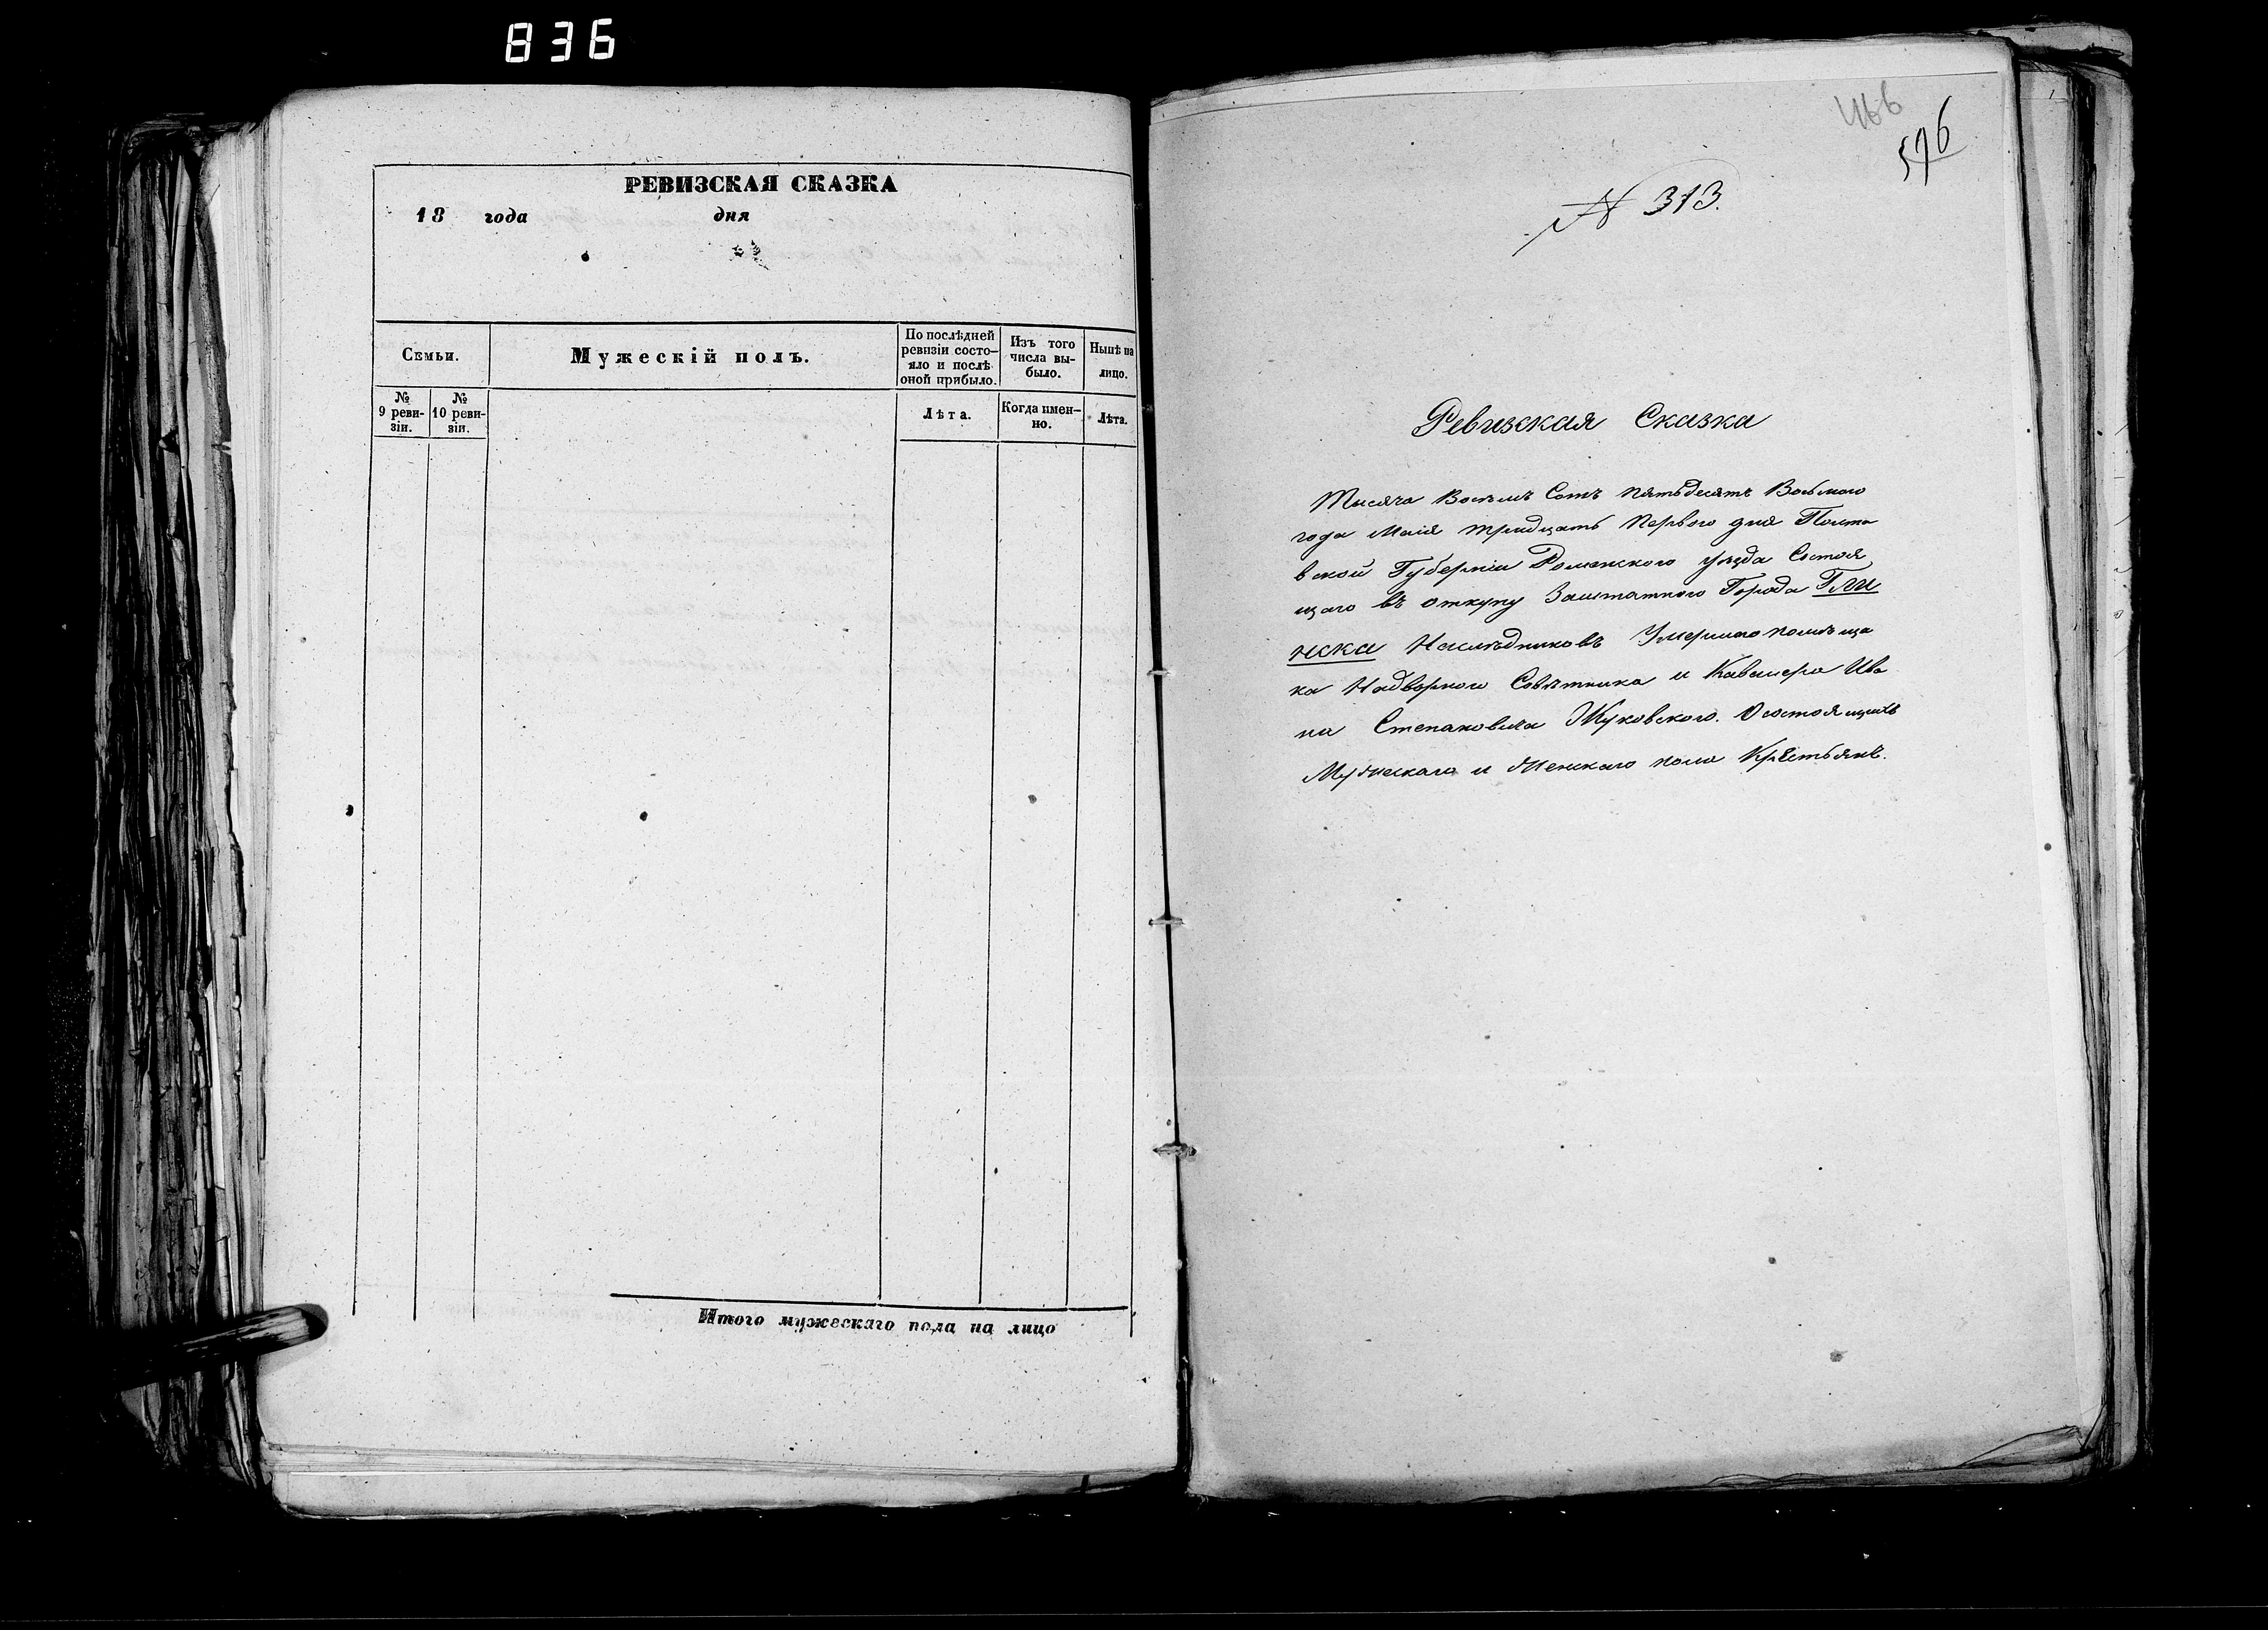 836
РЕВИЗСКАЯ СКАЗКА
18 года дня
Семьи.
Мужескій полъ.
По послѣдней ревизіи состо-
яло и послѣ
оной прибыло.
Изъ того
числа вы-
было.
Нынѣ на
лицо.
№
9 реви-
зіи.
№
10 реви-
зіи.
Лѣта.
Когда имен-
но.
Лѣта.
Итого мужескаго пола на лицо
466
576
№ 313.
Ревизская Сказка
Тысяча Восемъ Сотъ пятьдесятъ Восьмого
года Маія тридцать Первого дня Полта
вской Губерніи Роменского уѣзда Состоя
щаго въ откупу Заштатного Города Гли
нска Наслѣдниковъ Умершаго помѣщи
ка Надворного Совѣтника и Кавалера Ива
на Степановича Жуковского. О состоящихъ
Мужескаго и Женскаго пола Крестьянъ.